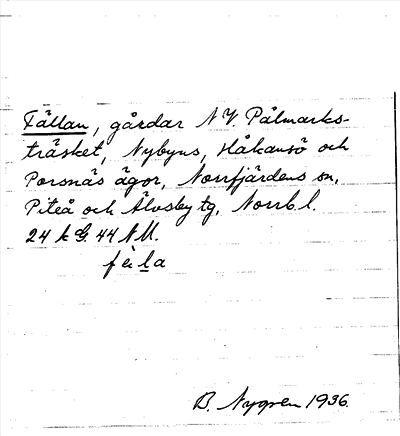 Fällan, gårdar N.V. Pålmarks-
träsket, Nybyns, Håkansö och
Porsnäs ägor, Norrfjärdens sn,
Piteå och Älvsby tg, Norrb. l.
24 k G. 44 N.M.
fèla
B. Nygren 1936.